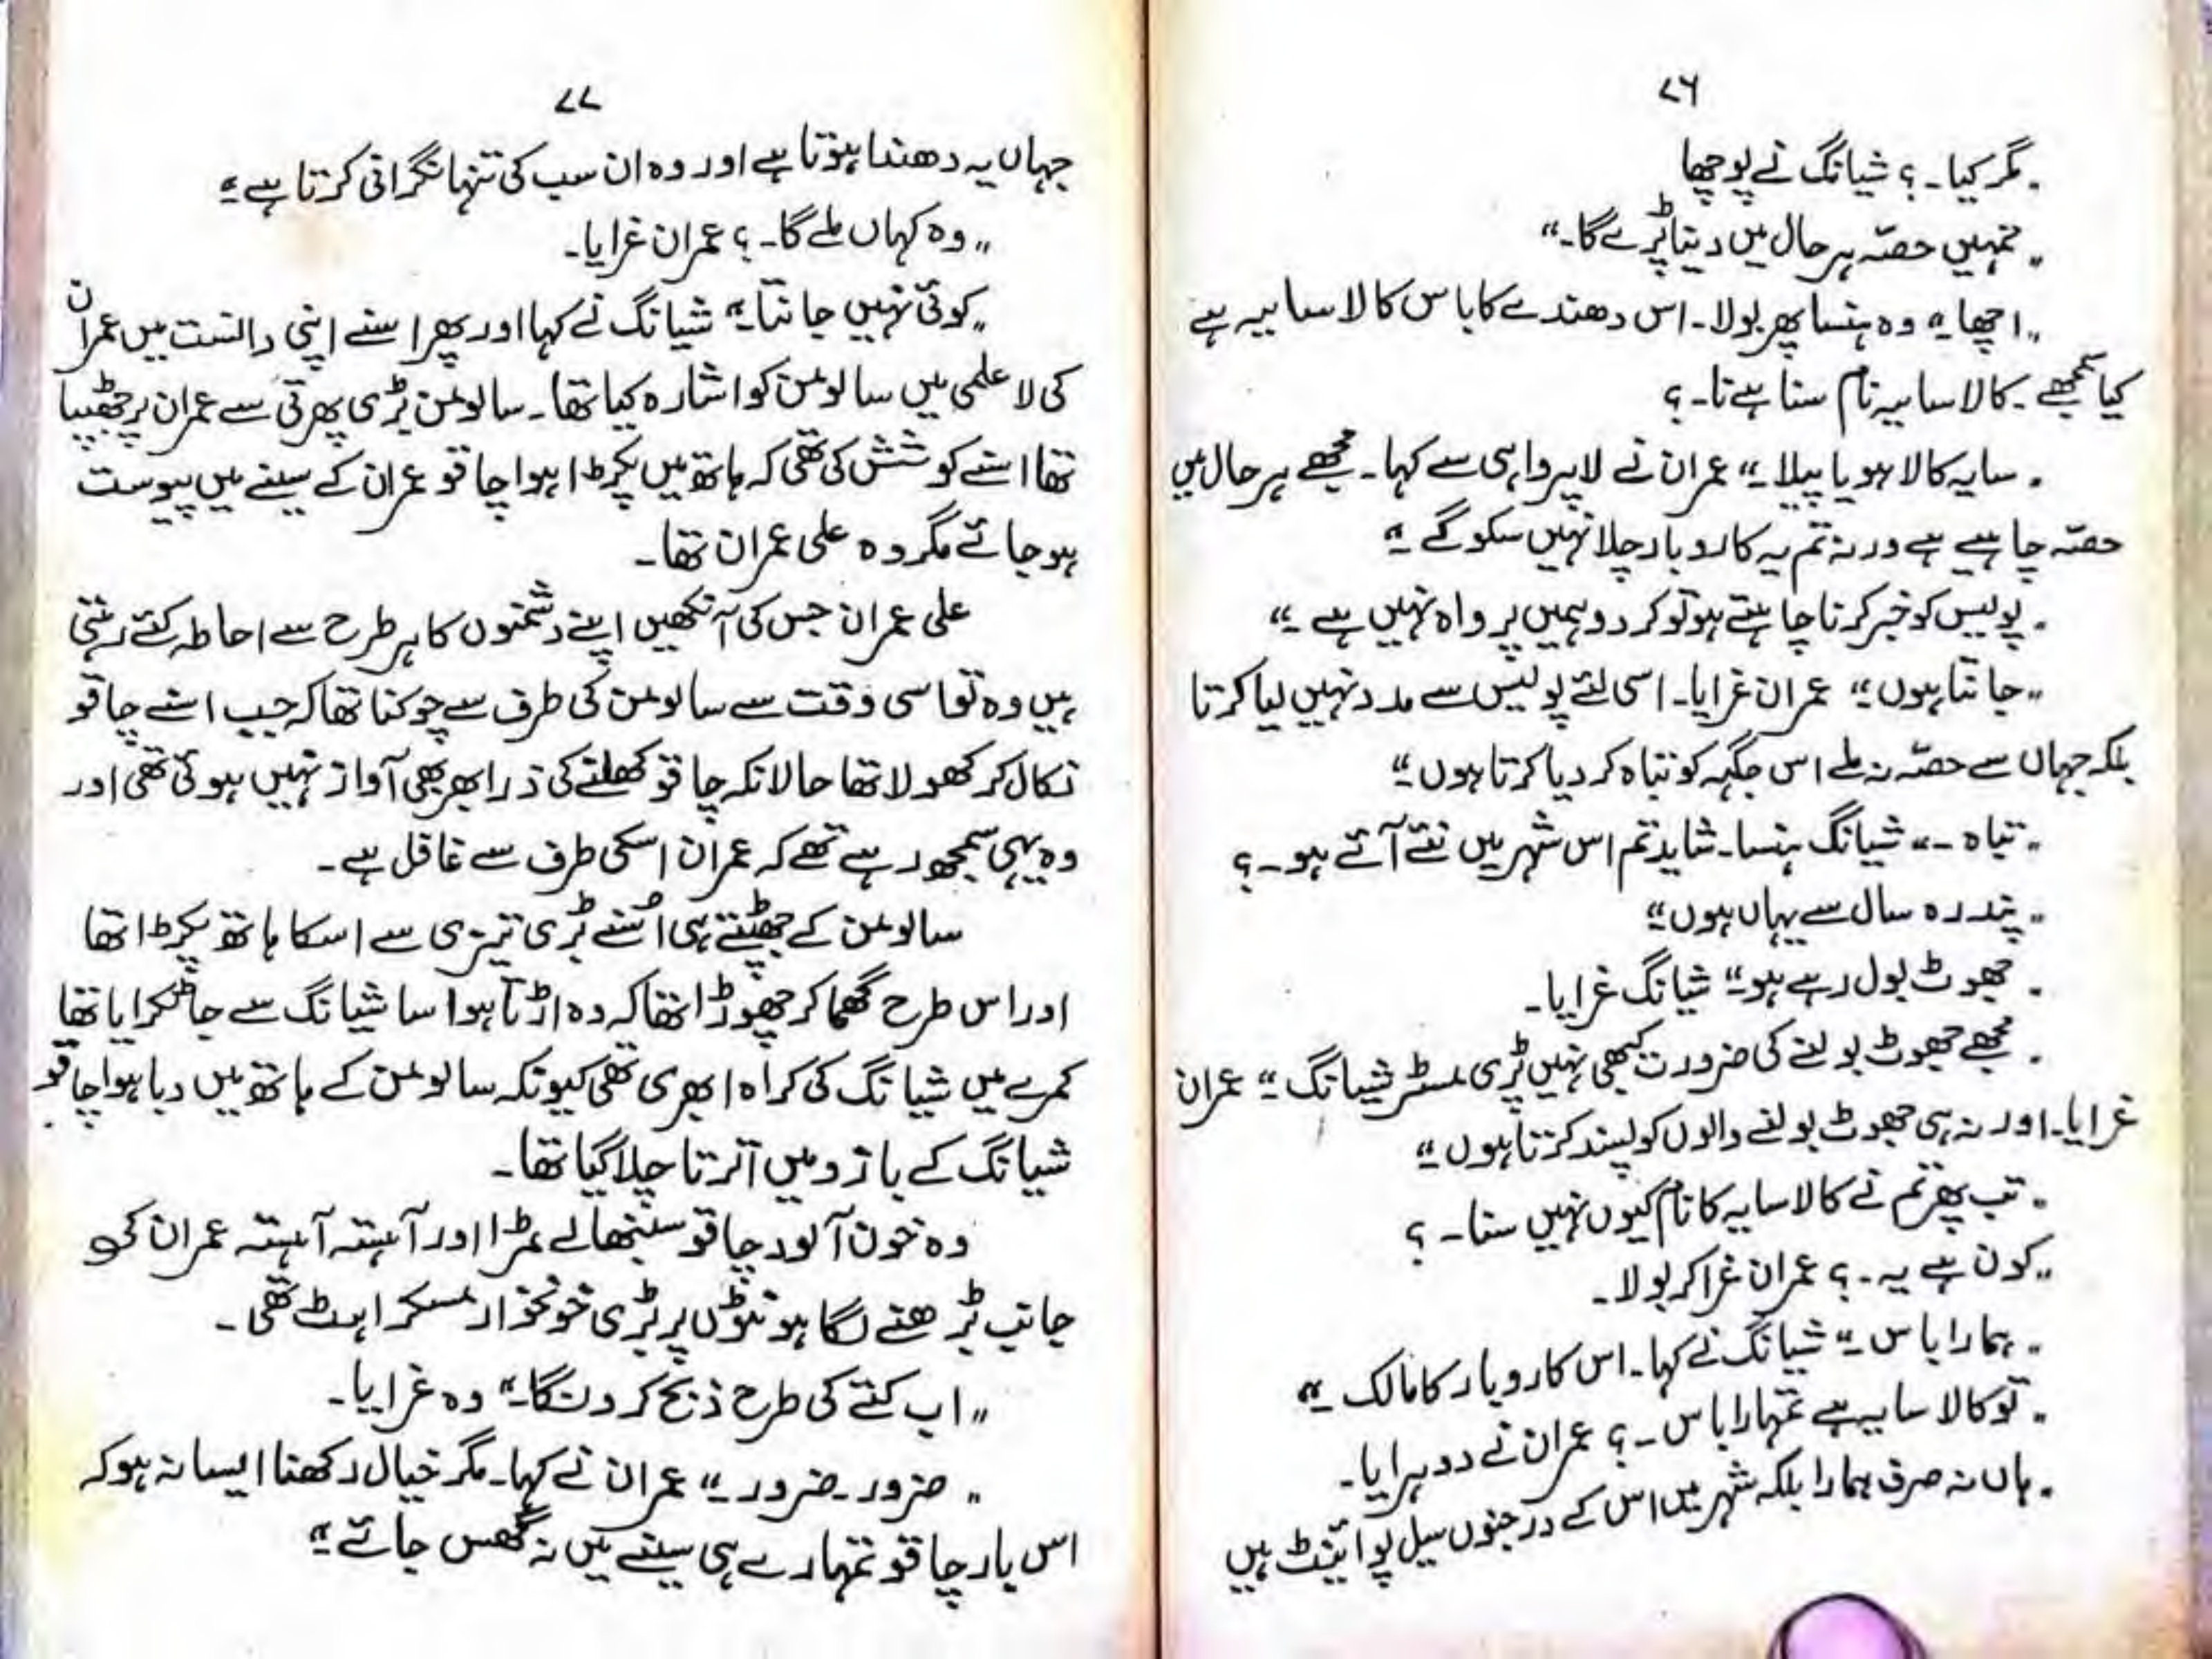 ۷۶
"مگر کیا۔؟ شیانگ نے پوچھا
"تمہیں حصّہ ہر حال میں دینا پڑے گا۔"
"اچھا۔" وہ ہنسا پھر بولا۔ اس دھندے کا باس کالا سایہ ہے
کیا سمجھے۔ کالا سایہ نام سنا ہے نا۔؟
"سایہ کالا ہو یا پیلا۔" عمران نے لاپرواہی سے کہا۔ مجھے ہر حال میں
حصّہ چاہیے ہے ورنہ تم یہ کاروبار چلا نہیں سکو گے۔"
"پولیس کو خبر کرنا چاہتے ہو تو کر دو ہمیں پرواہ نہیں ہے۔"
"جانتا ہوں۔" عمران غرایا۔ اسی لئے پولیس سے مدد نہیں لیا کرتا
بلکہ جہاں سے حصّہ نہ ملے اس جگہہ کو تباہ کر دیا کرتا ہوں۔"
"تباہ۔" شیانگ ہنسا۔ شاید تم اس شہر میں نئے آئے ہو۔؟
"پندرہ سال سے یہاں ہوں۔"
"جھوٹ بول رہے ہو۔" شیانگ غرایا۔
"مجھے جھوٹ بولنے کی ضرورت کبھی نہیں پڑی مسٹر شیانگ۔" عمران
غرایا۔ اور نہ ہی جھوٹ بولنے والوں کو پسند کرتا ہوں۔"
"تب پھر تم نے کالا سایہ کا نام کیوں نہیں سنا۔؟
"کون ہے یہ۔؟ عمران غرا کر بولا۔
"ہمارا باس۔" شیانگ نے کہا۔ اس کاروبار کا مالک۔"
"تو کالا سایہ ہے تمہارا باس۔؟ عمران نے دوہرایا۔
"ہاں نہ صرف ہمارا بلکہ شہر میں اس کے درجنوں سیل پوائینٹ ہیں
۷۷
جہاں یہ دھندا ہوتا ہے اور وہ ان سب کی تنہا نگرانی کرتا ہے۔"
"وہ کہاں ملے گا۔؟ عمران غرایا۔
"کوئی نہیں جانتا۔" شیانگ نے کہا اور پھر اسنے اپنی دانست میں عمران
کی لاعلمی میں سالومن کو اشارہ کیا تھا۔ سالومن بڑی پھرتی سے عمران پر جھپٹا
تھا اسنے کوشش کی تھی کہ ہاتھ میں پکڑا ہوا چاقو عمران کے سینے میں پیوست
ہو جائے مگر وہ علی عمران تھا۔
علی عمران جس کی آنکھیں اپنے دشمنوں کا ہر طرح سے احاطہ کئے رہتی
ہیں وہ تو اسی وقت سے سالومن کی طرف سے چوکنا تھا کہ جب اسنے چاقو
نکال کر کھولا تھا حالانکہ چاقو کھلنے کی ذرا بھر بھی آواز نہیں ہوئی تھی اور
وہ یہی سمجھ رہے تھے کہ عمران اسکی طرف سے غافل ہے۔
سالومن کے جھپٹتے ہی اُسنے بڑی تیزی سے اسکا ہاتھ پکڑا تھا
اور اس طرح گھما کر چھوڑا تھا کہ وہ اڑتا ہوا سا شیانگ سے جا ٹکرایا تھا
کمرے میں شیانگ کی کراہ ابھری تھی کیونکہ سالومن کے ہاتھ میں دبا ہوا چاقو
شیانگ کے بازو میں اترتا چلا گیا تھا۔
وہ خون آلود چاقو سنبھالے مڑا اور آہستہ آہستہ عمران کی
جانب بڑھنے لگا ہونٹوں پر بڑی خونخوار مسکراہٹ تھی۔
"اب کتے کی طرح ذبح کر دونگا۔" وہ غرایا۔
"ضرور۔ ضرور۔" عمران نے کہا۔ مگر خیال رکھنا ایسا نہ ہو کہ
اس بار چاقو تمہارے ہی سینے میں نہ گھس جائے۔"